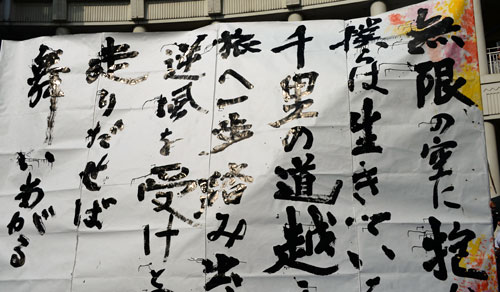 無限の空に抱
僕は生きている
千里の道越
旅へ一歩踏み出
逆風を受けと
走りだせば
舞いあがる